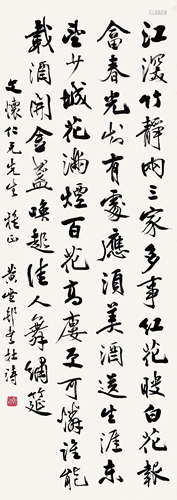 江深竹靜兩三家多事紅花映白花報
畣春光知有處應須美酒送生涯東
望少城花滿煙百花高廔更可憐誰能
載酒開金盞喚起佳人舞繡筵
文懷仁兄先生 雅正 黃書杜詩